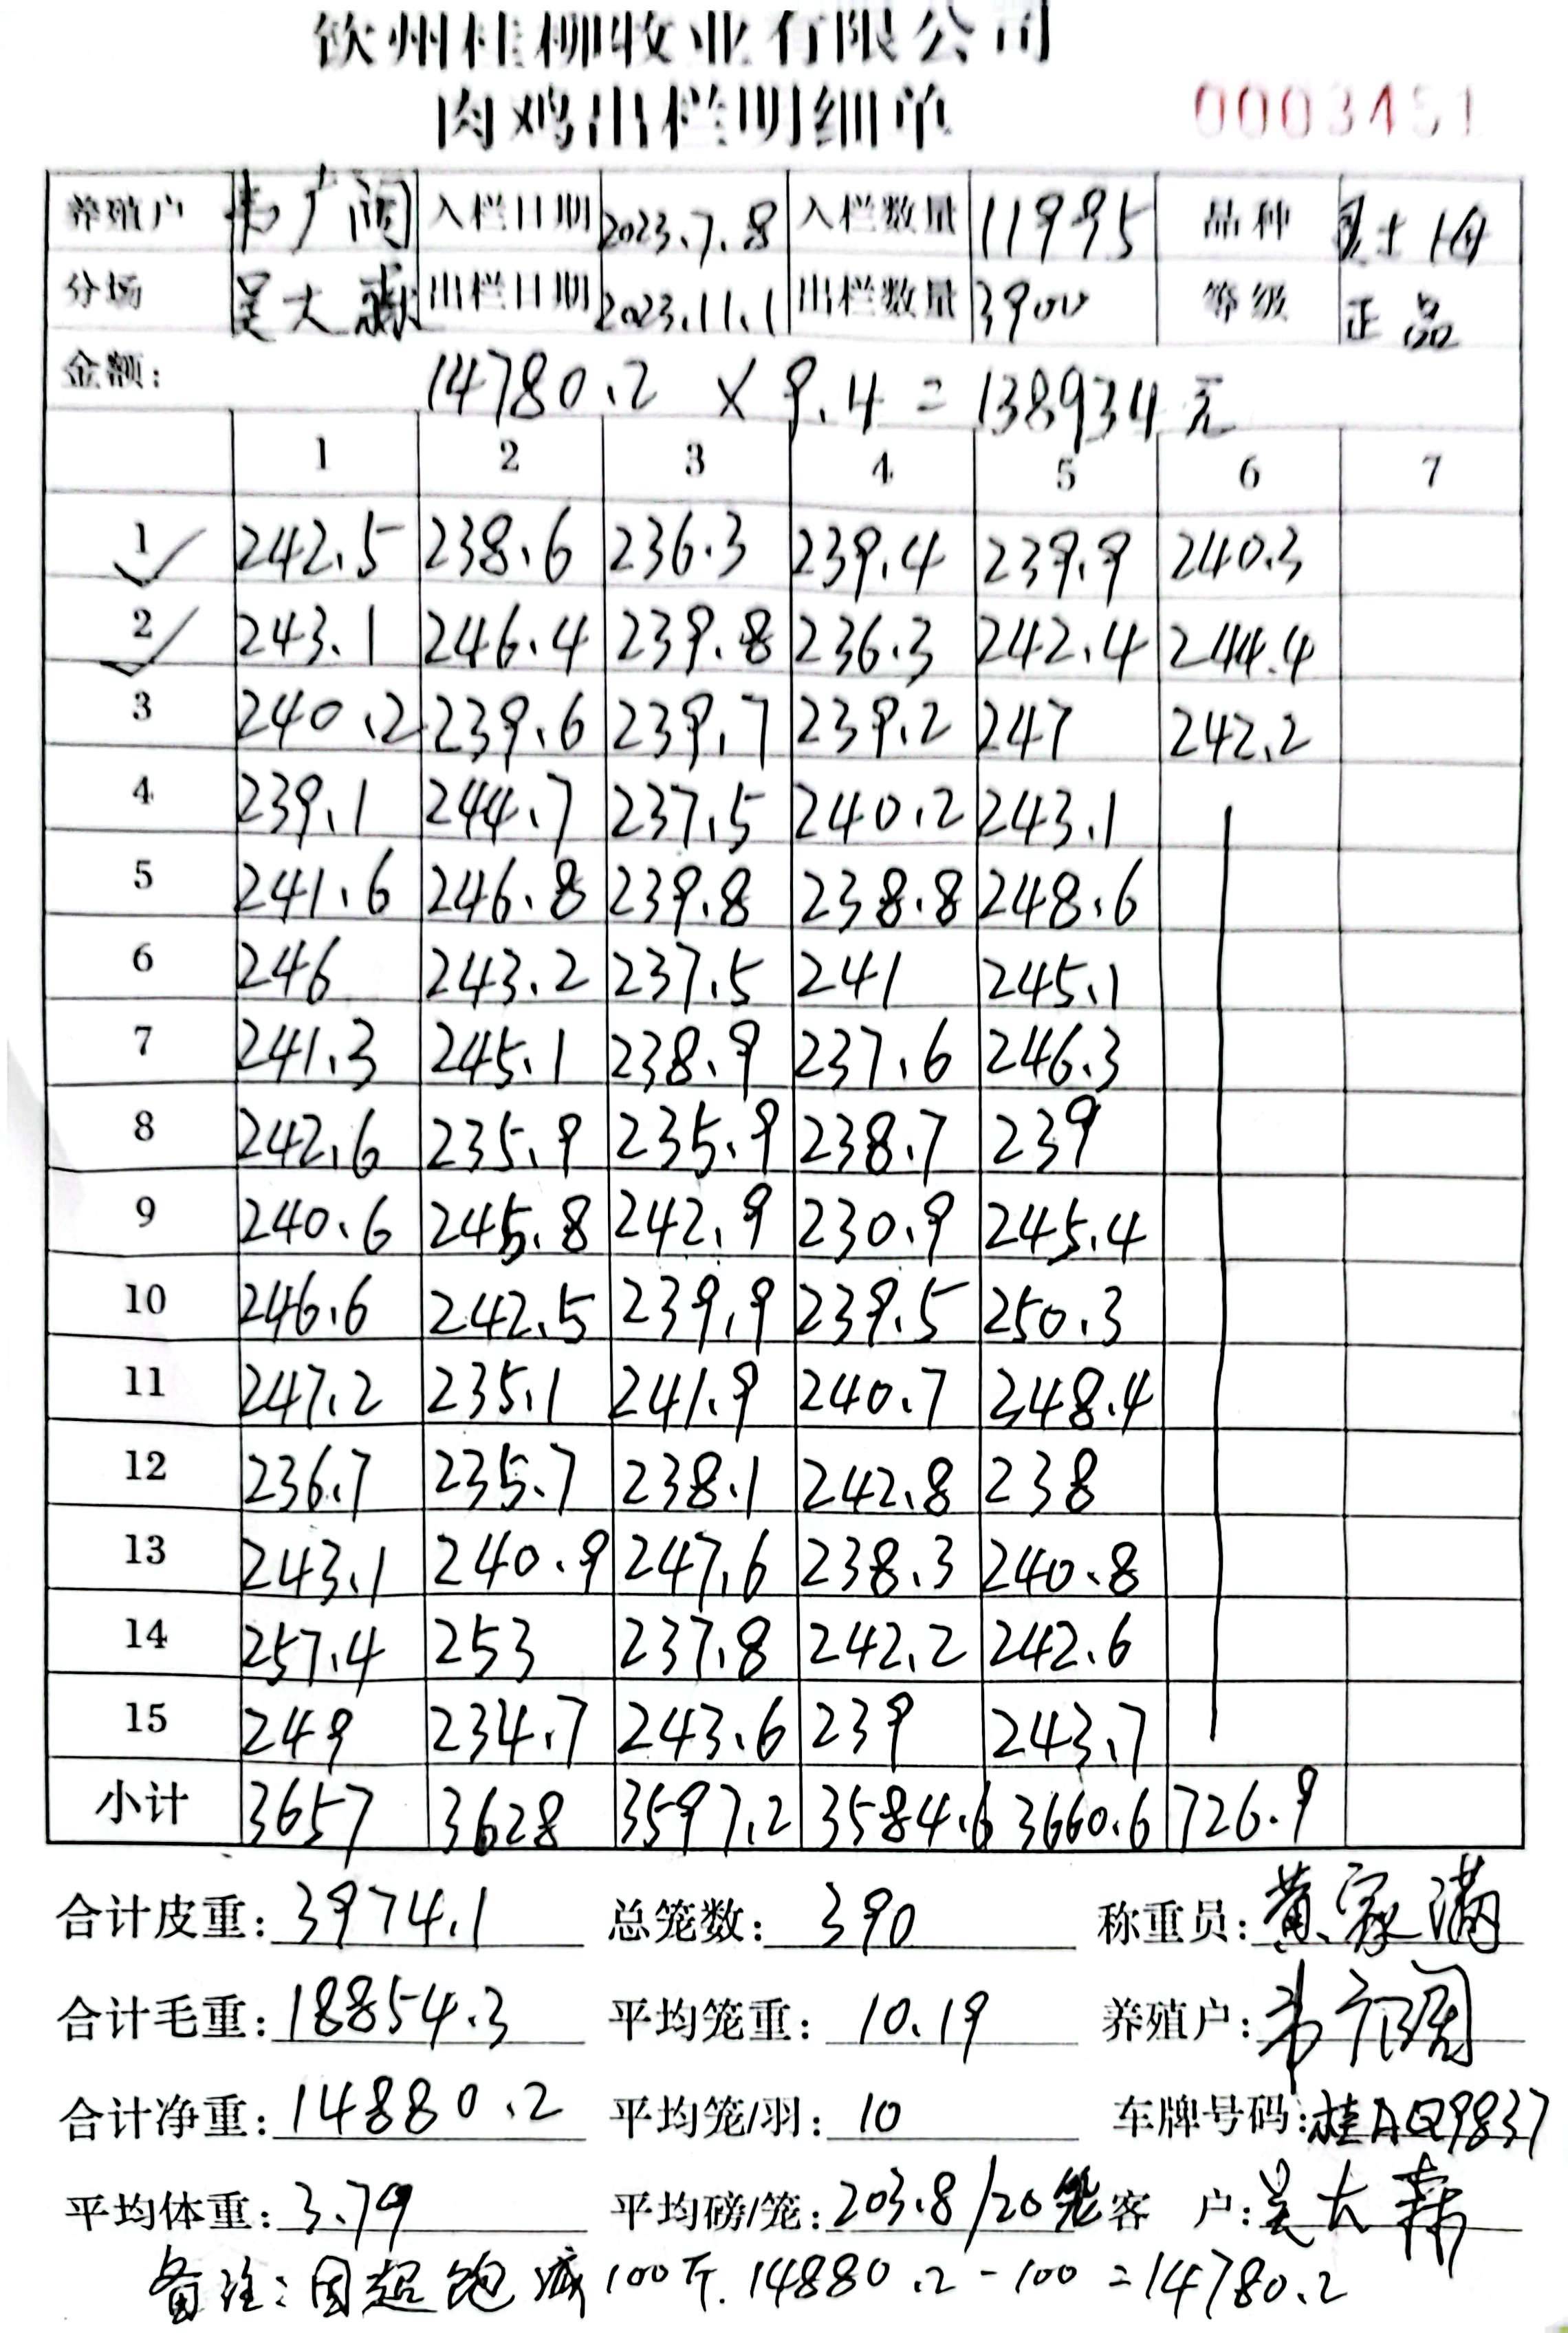 钦州桂柳牧业有限公司
肉鸡出栏明细单 0003451
养殖户 韦广阔 入栏日期 2023.7.8 入栏数量 11995 品种 土
分场 吴大 出栏日期 2023.11.1 出栏数量 3900 等级 正品
金额: 14780.2 × 9.4 = 138934 元
1 2 3 4 5 6 7
1 242.5 238.6 236.3 239.4 239.9 240.3
2 243.1 246.4 239.8 236.3 242.4 244.4
3 240.2 239.6 239.7 239.2 247 242.2
4 239.1 244.7 237.5 240.2 243.1
5 241.6 246.8 239.8 238.8 248.6
6 246 243.2 237.5 241 245.1
7 241.3 245.1 238.9 237.6 246.3
8 242.6 235.9 235.9 238.7 239
9 240.6 245.8 242.9 230.9 245.4
10 246.6 242.5 239.9 239.5 250.3
11 247.2 235.1 241.9 240.7 248.4
12 236.7 235.7 238.1 242.8 238
13 243.1 240.9 247.6 238.3 240.8
14 257.4 253 237.8 242.2 242.6
15 249 234.7 243.6 239 243.7
小计 3657 3628 3597.2 3584.6 3660.6 726.9
合计皮重: 3974.1 总笼数: 390 称重员: 黄家满
合计毛重: 18854.3 平均笼重: 10.19 养殖户: 韦广阔
合计净重: 14880.2 平均笼/羽: 10 车牌号码: 桂AQ9837
平均体重: 3.79 平均磅/笼: 203.8/20笼 客 户: 吴大
备注: 因超饱减100斤. 14880.2-100=14780.2